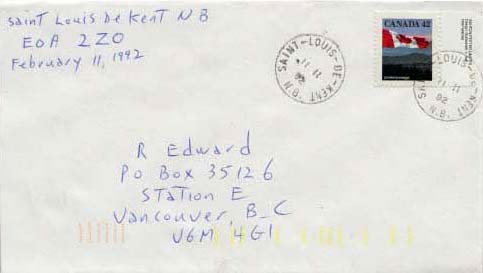 Saint Louis De Kent N B
E0A 2Z0
February 11, 1992
CANADA 42
SAINT-LOUIS-DE-KENT, N.B.
11 II
92
SAINT-LOUIS-DE-KENT, N.B.
11 II
92
R Edward
PO Box 35126
Station E
Vancouver, B_C
V6M 4G1